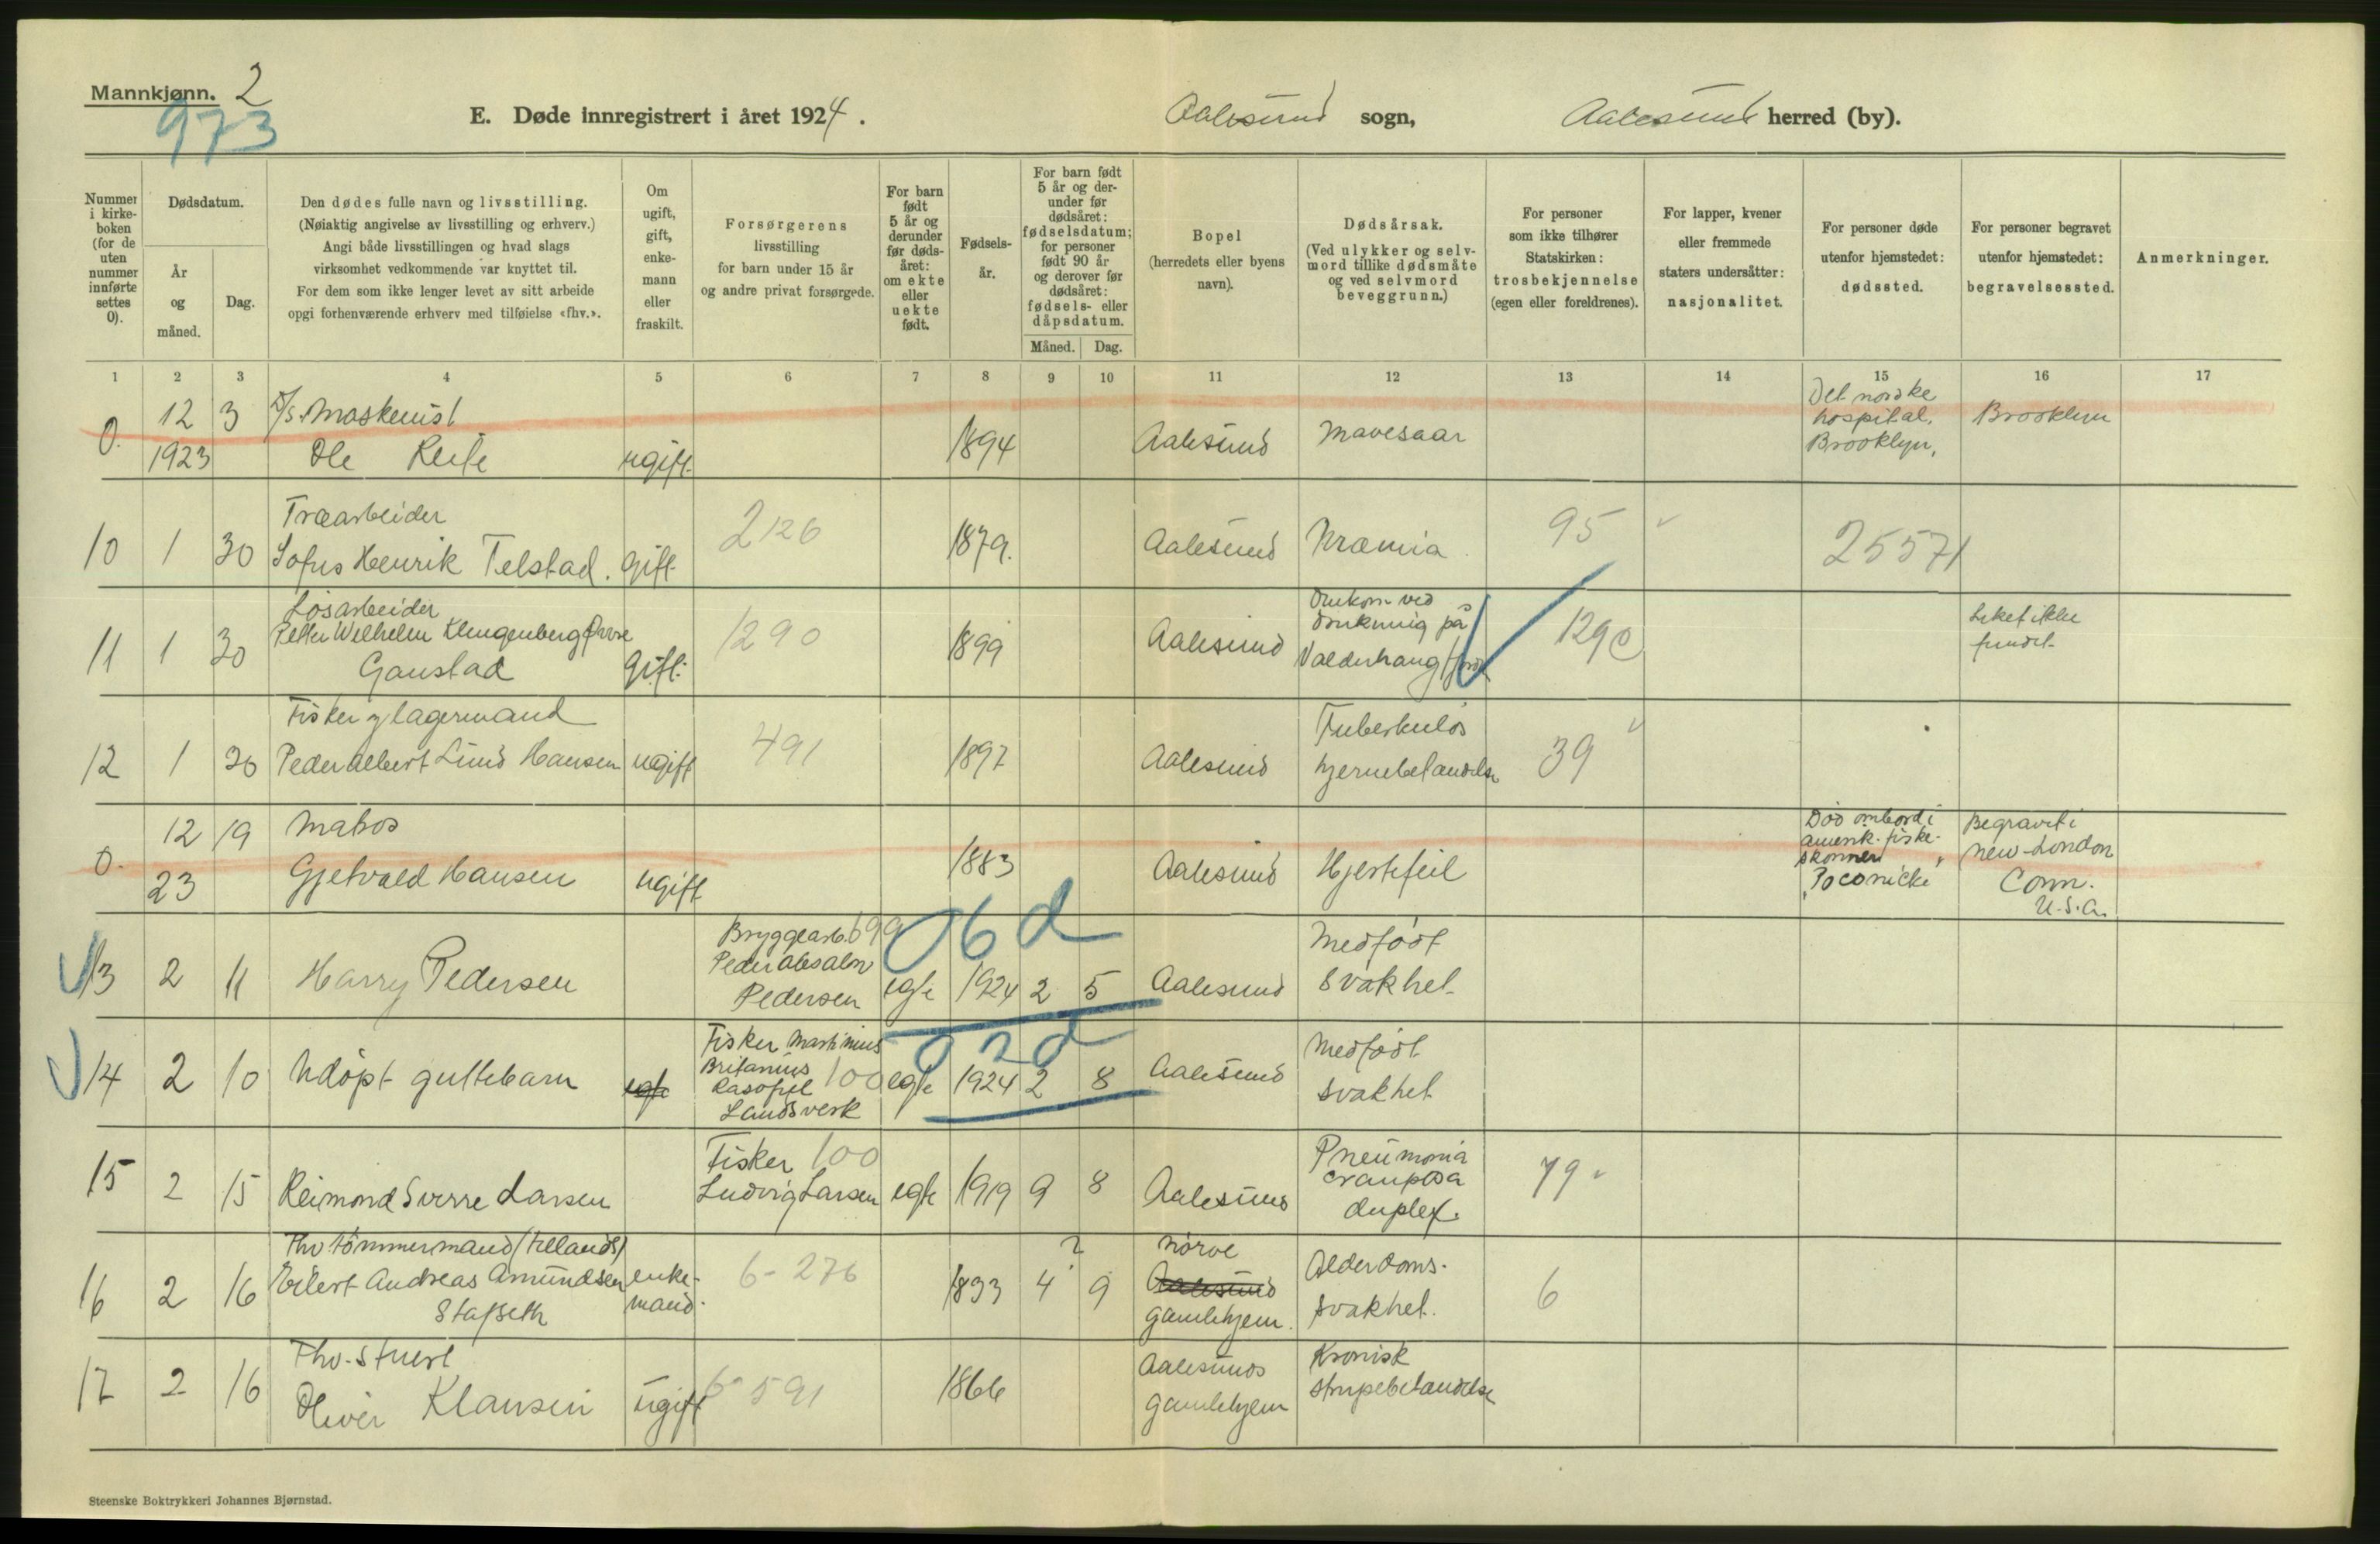 Mannkjønn. 2
973
E. Døde innregistrert i året 1924.
Aalesund sogn,
Aalesund herred (by).
Nummer i kirke-boken (for de uten nummer innførte settes 0).
Dødsdatum.
År og måned.
Dag.
Den dødes fulle navn og livsstilling.
(Nøiaktig angivelse av livsstilling og erhverv.)
Angi både livsstillingen og hvad slags
virksomhet vedkommende var knyttet til.
For dem som ikke lenger levet av sitt arbeide
opgi forhenværende erhverv med tilføielse «fhv.».
Om ugift, gift, enke-mann eller fraskilt.
Forsørgerens
livsstilling
for barn under 15 år
og andre privat forsørgede.
For barn født 5 år og derunder før døds-året: om ekte eller uekte født.
Fødsels-år.
For barn født 5 år og der-under før dødsåret: fødselsdatum; for personer født 90 år og derover før dødsåret: fødsels- eller dåpsdatum.
Måned. Dag.
Bopel
(herredets eller byens navn).
Dødsårsak.
(Ved ulykker og selv-mord tillike dødsmåte og ved selvmord beveggrunn.)
For personer som ikke tilhører Statskirken: trosbekjennelse (egen eller foreldrenes).
For lapper, kvener eller fremmede staters undersåtter: nasjonalitet.
For personer døde utenfor hjemstedet: dødssted.
For personer begravet utenfor hjemstedet: begravelsessted.
Anmerkninger.
1 2 3 4 5 6 7 8 9 10 11 12 13 14 15 16 17
0. 12 1923 3 D/s. Maskinist
Ole ugift 1894 Aalesund Mavesaar Det norske hospital, Brooklyn, Brooklyn
10 1 30 Træarbeider
Sofus Henrik Telstad. gift 2126 1879. Aalesund Uræmia. 95 25571
11 1 30 Løsarbeider
Petter Wilhelm Klingenberg
Gaustad gift. 1290 1899 Aalesund Omkom ved drukning på Valderhaugfjord 1290 Liket ikke fundet
12 1 30 Fisker og lagermand
Peder Albert Lund Hansen ugift 491 1897 Aalesund Tuberkuløs hjernebetændelse 39
0. 12 23 19 Matros
Gjetvald Hansen ugift 1883 Aalesund Hjertefeil Død ombord i amerik. fiske-skonnert "Poconicki" Begravet i New-London Conn. U.S.A.
13 2 11 Harry Pedersen Bryggearb. 699 Peder Absalon Pedersen egte 06 d 1924 2 5 Aalesund Medfødt svakhet
14 2 10 Udøpt guttebarn egte Fisker Martinius Britanius Landsverk 100 egte 02d 1924 2 8 Aalesund Medfødt svakhet
15 2 15 Reimond Sverre Larsen Fisker 100 Ludvig Larsen egte 1919 9 8 Aalesund Pneumonia crouposa duplex. 79
16 2 16 Fhv tømmermand (tillands)
Eilert Andreas Amundsen
Stafseth enke-mand. 6-276 1833 4 ? 9 Nørve Aalesund gamlehjem. Alderdoms-svakhet. 6
17 2 16 Fhv. stuert
Oliver Klausen ugift 6-591 1866 Aalesunds gamlehjem Kronisk strupebetændelse
Steenske Boktrykkeri Johannes Bjørnstad.